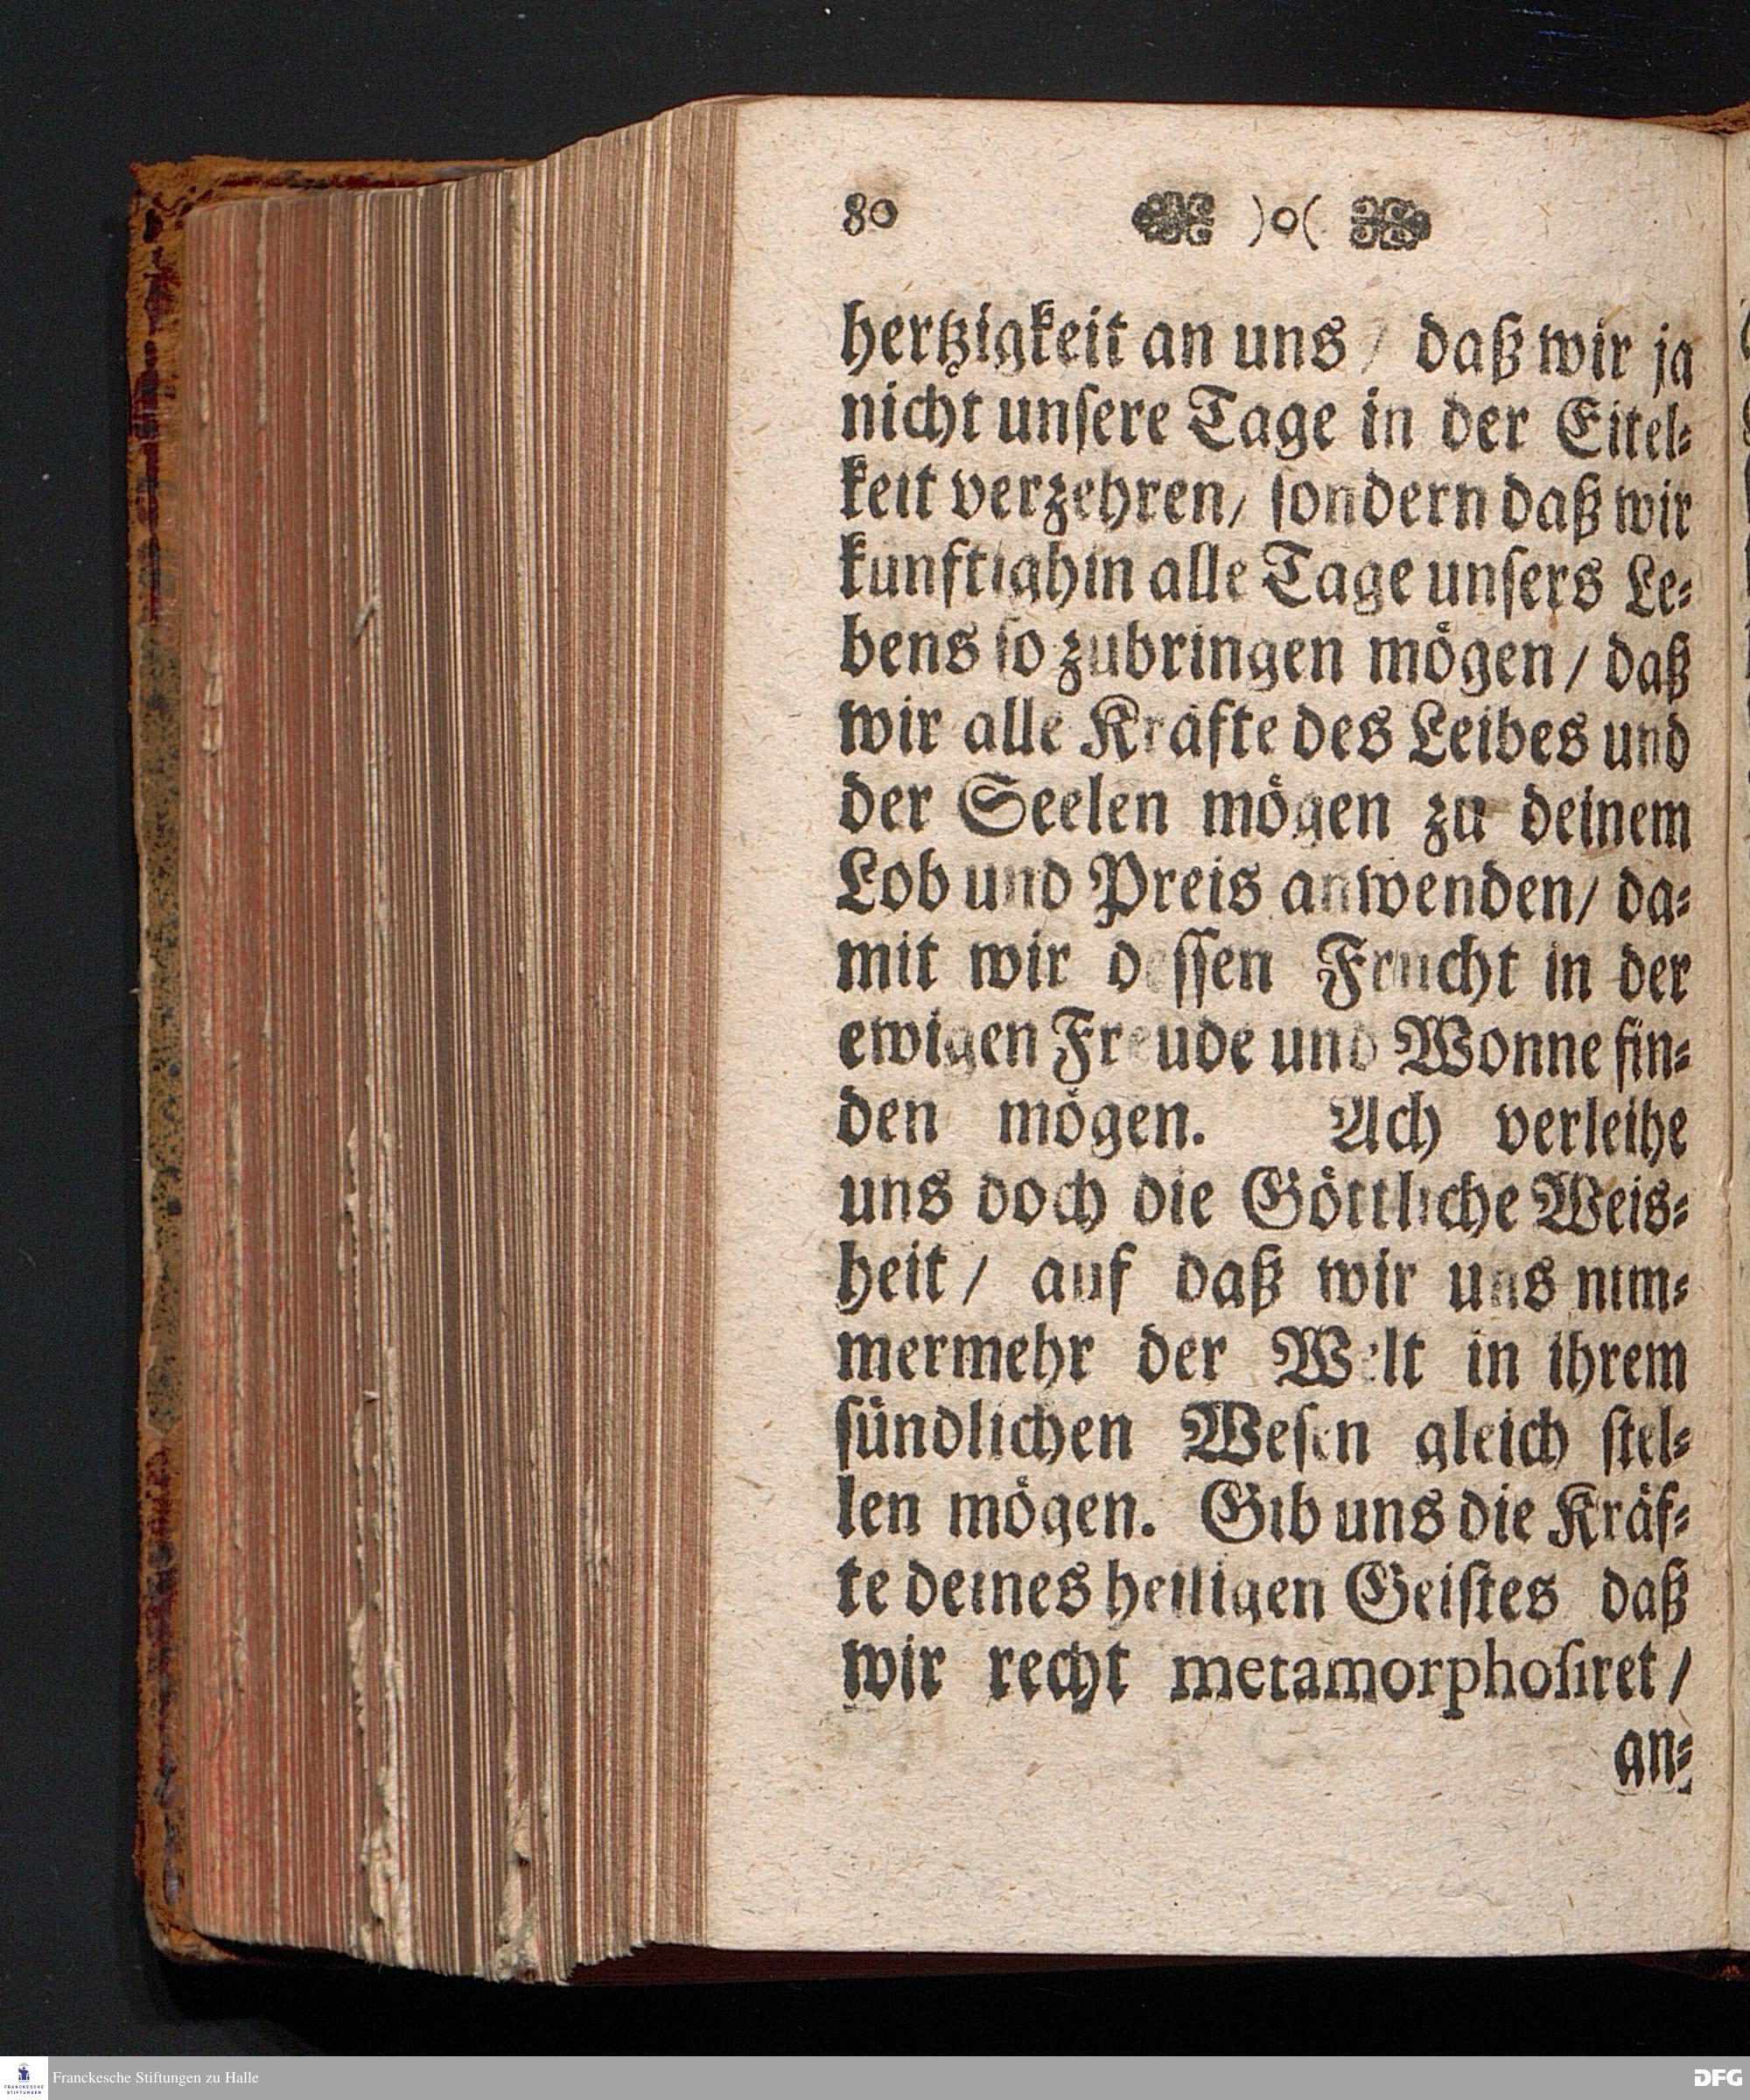 80 )o(
hertzigkeit an uns / daß wir ja
nicht unsere Tage in der Eitel-
keit verzehren/ sondern daß wir
kunftighin alle Tage unsers Le-
bens so zubringen mögen / daß
wir alle Kräfte des Leibes und
der Seelen mögen zu deinem
Lob und Preis anwenden/ da-
mit wir dessen Frucht in der
ewigen Freude und Wonne fin-
den mögen. Ach verleihe
uns doch die Göttliche Weis-
heit / auf daß wir uns nim-
mermehr der Welt in ihrem
sündlichen Wesen gleich stel-
len mögen. Gib uns die Kräf-
te deines heiligen Geistes daß
wir recht metamorphosiret /
an-
Franckesche Stiftungen zu Halle
FRANCKESCHE
STIFTUNGEN
DFG